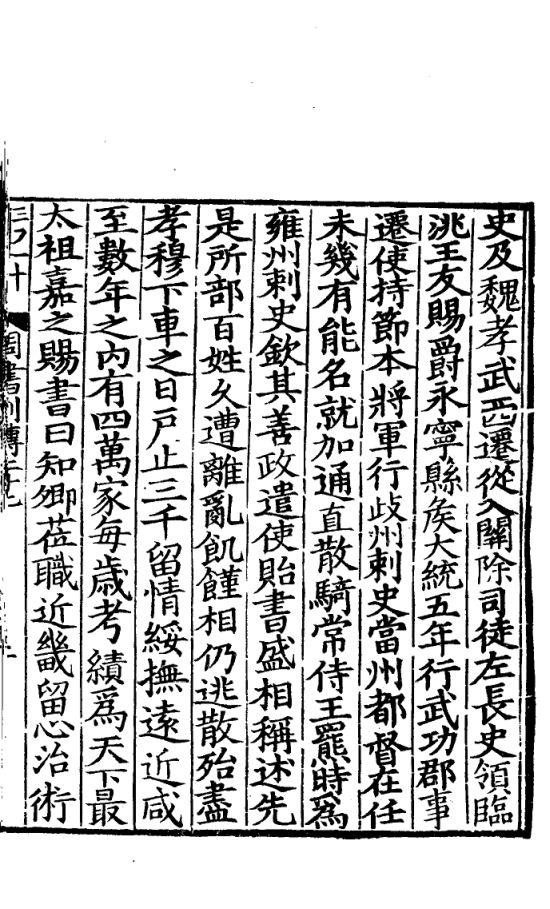 史及魏孝武西遷從入關除司徒左長史領臨
洮王友賜爵永寧縣矦大統五年行武功郡事
遷使持節本將軍行歧州刺史當州都督在任
未幾有能名就加通直散騎常侍王羆時爲
雍州刺史欽其善政遣使貽書盛相稱述先
是所部百姓乆遭離亂飢饉相仍逃散殆盡
孝穆下車之日戸止三千留情綏撫遠近咸
至數年之内有四萬家每歳考績爲天下最
太祖嘉之賜書曰知卿莅職近畿留心治術
周書列傳二十七